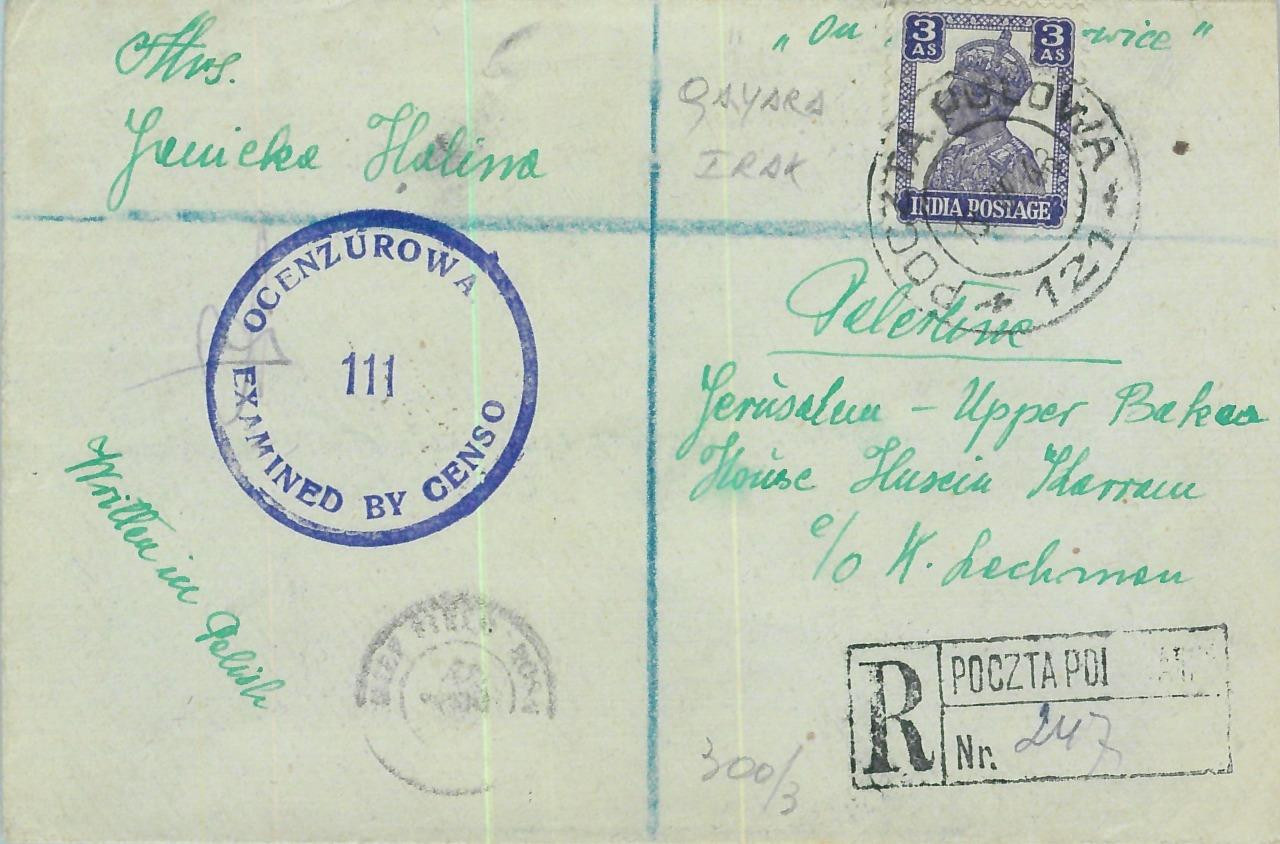 Mrs.
Janicka Halina
„On
rvice"
QAYARA
IRAK
3 AS
3 AS
INDIA POSTAGE
POCZTA POLOWA * 121 *
OCENZUROWA
111
EXAMINED BY CENSO
Palestine
Jerusalem - Upper Bakaa
House Husein Karram
c/o K. Lachman
Written in Polish
R
POCZTA POl
Nr. 247
300/3